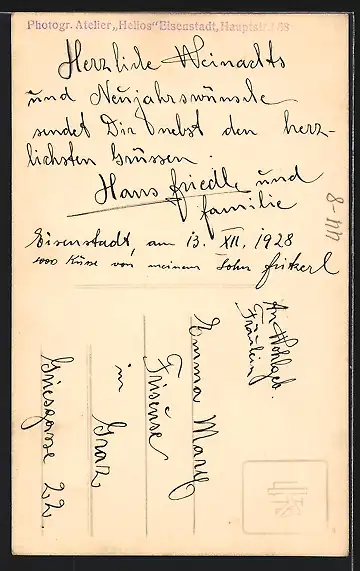 Photogr. Atelier „Helios" Eisenstadt, Hauptstr. 68
Herzliche Weinachts
und Neujahrswünsche
sendet Dir nebst den herz-
lichsten Grüssen.
Hans Friedle und
Familie
Eisenstadt, am 13. XII. 1928
1000 Küsse von meinem Sohn Fritzerl
An Wohlgeb.
Fräulein
Emma Mary
Friseuse
in Graz
Griesgasse 22.